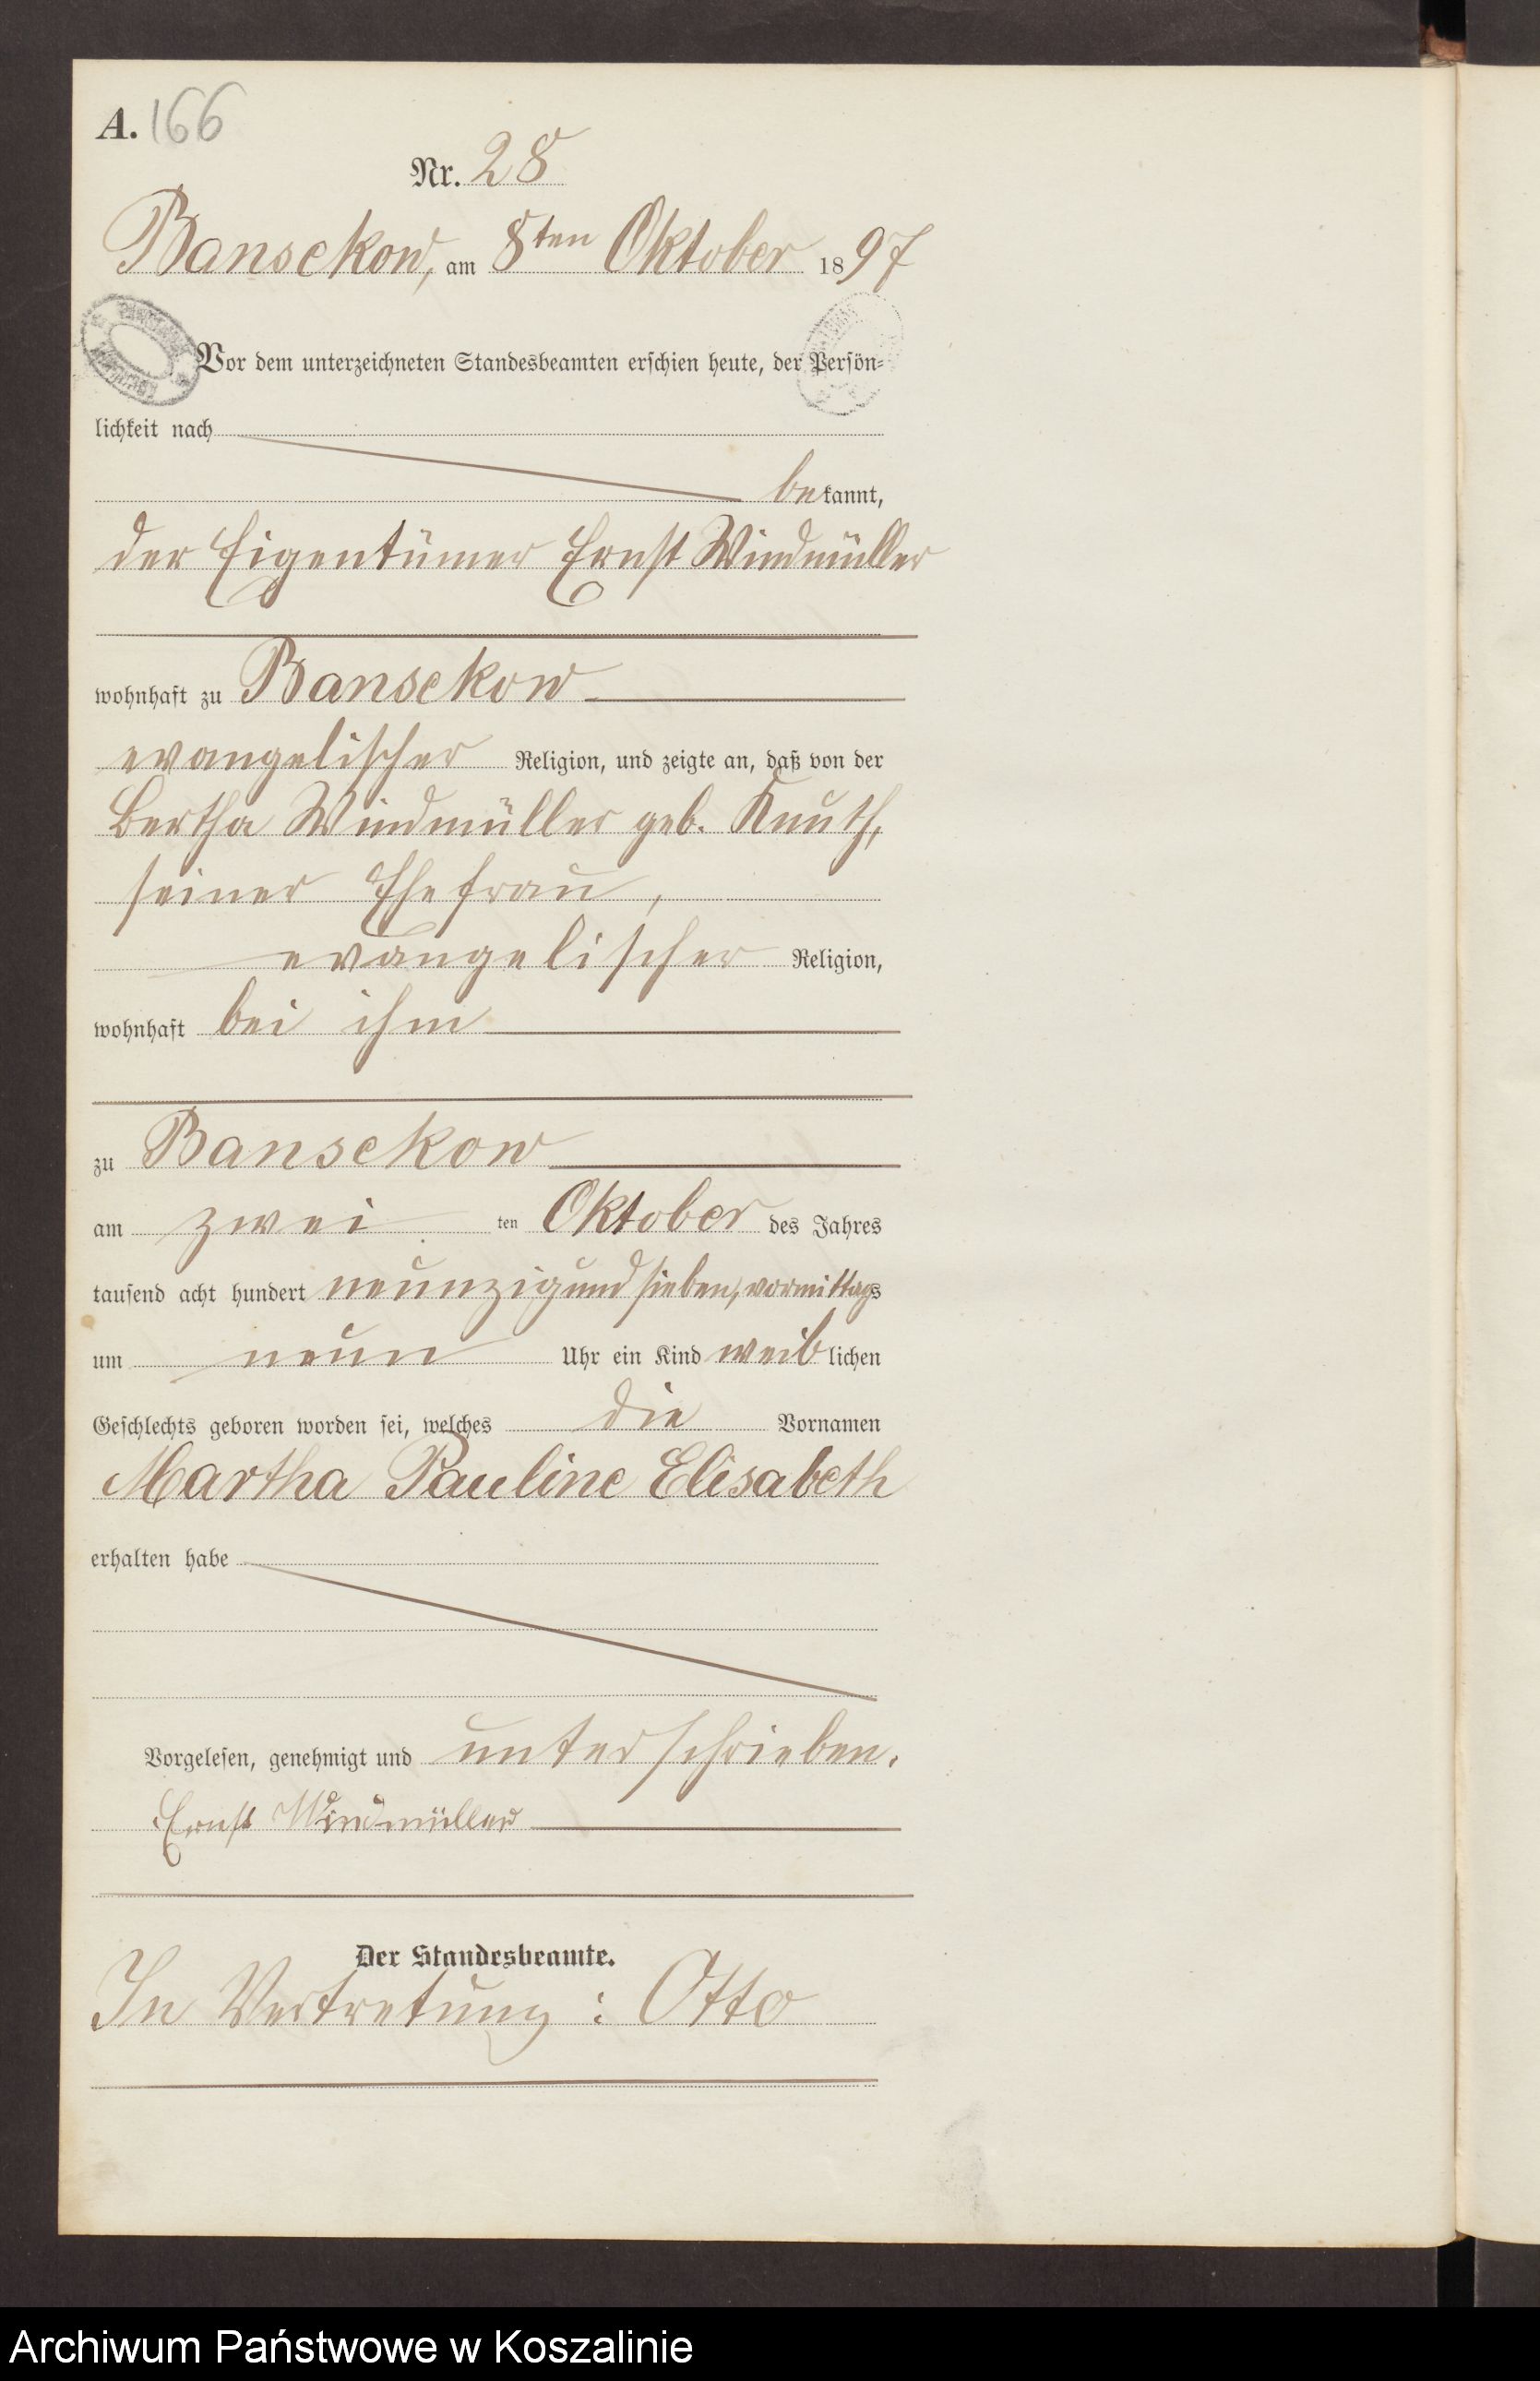 A. 166
Nr. 28
Bansekow, am 8ten Oktober 1897
Vor dem unterzeichneten Standesbeamten erschien heute, der Persön-
lichkeit nach
bekannt,
der Eigentümer Ernst Windmüller
wohnhaft zu Bansekow
evangelischer Religion, und zeigte an, daß von der
Bertha Windmüller geb. Knuth,
seiner Ehefrau,
evangelischer Religion,
wohnhaft bei ihm
zu Bansekow
am zwei ten Oktober des Jahres
tausend acht hundert neunzig und sieben, vormittags
um neun Uhr ein Kind weiblichen
Geschlechts geboren worden sei, welches die Vornamen
Martha Pauline Elisabeth
erhalten habe
Vorgelesen, genehmigt und unterschrieben.
Ernst Windmüller
Der Standesbeamte.
In Vertretung: Otto
Archiwum Państwowe w Koszalinie